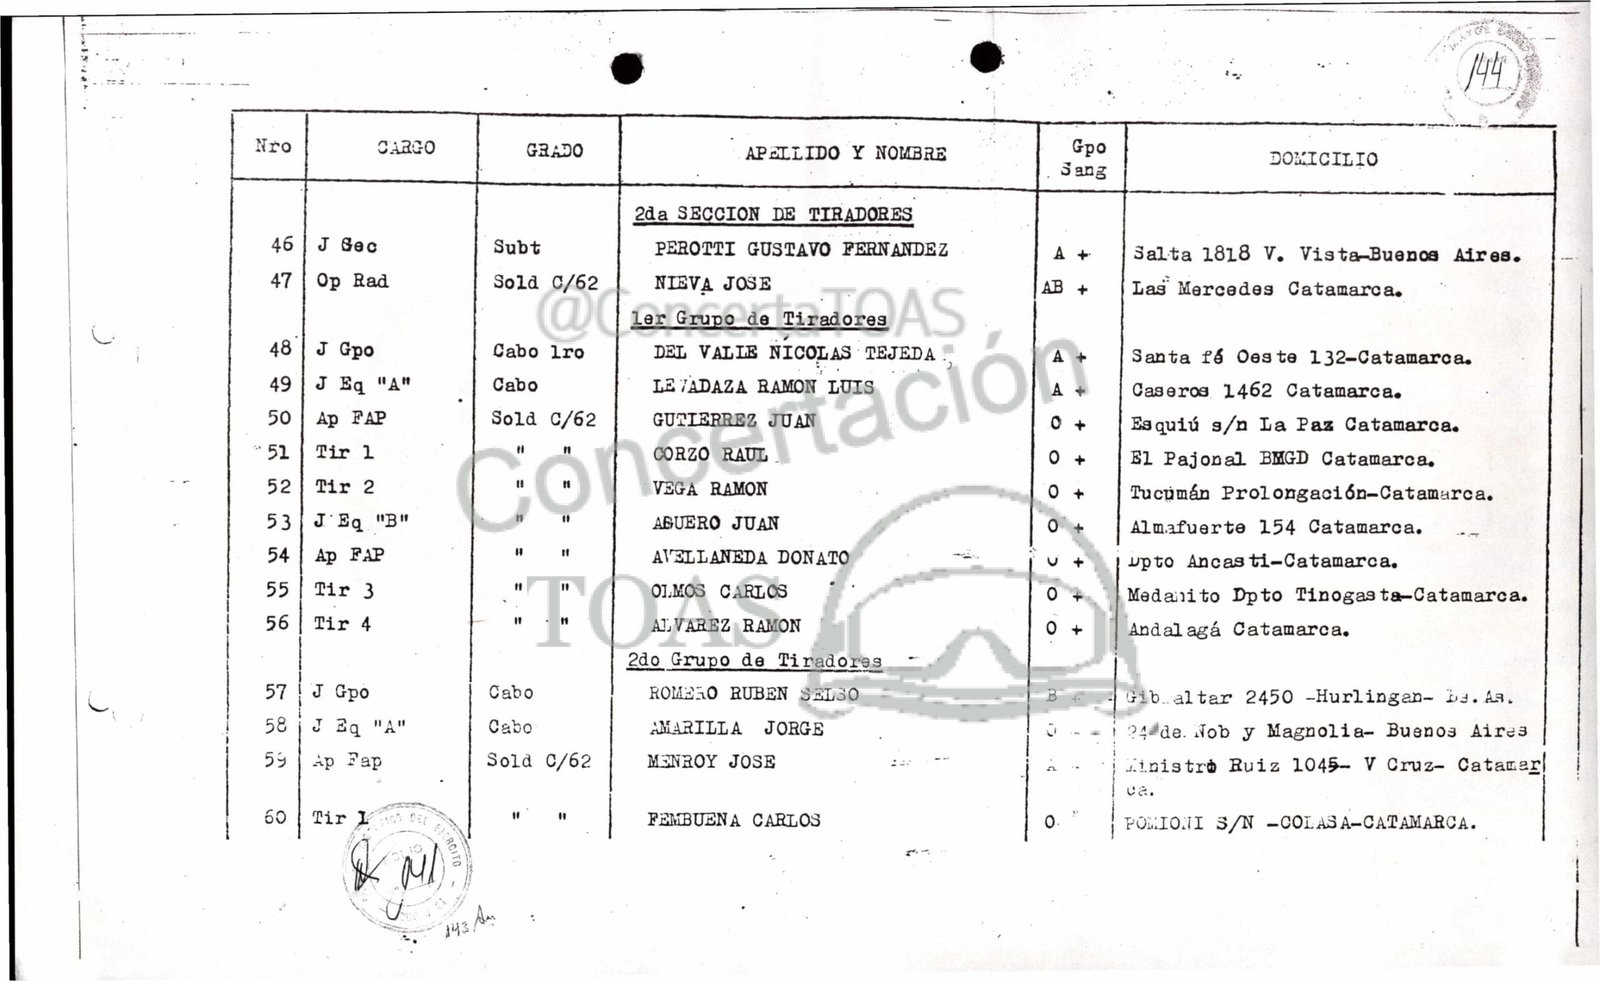 144
Nro CARGO GRADO APELLIDO Y NOMBRE Gpo Sang DOMICILIO
2da SECCION DE TIRADORES
46 J Sec Subt PEROTTI GUSTAVO FERNANDEZ A + Salta 1818 V. Vista-Buenos Aires.
47 Op Rad Sold C/62 NIEVA JOSE AB + Las Mercedes Catamarca.
@ConcertaTOAS
1er Grupo de Tiradores
48 J Gpo Cabo 1ro DEL VALLE NICOLAS TEJEDA A + Santa fé Oeste 132-Catamarca.
49 J Eq "A" Cabo RAMON LUIS A + Caseros 1462 Catamarca.
50 Ap FAP Sold C/62 GUTIERREZ JUAN O + Esquiú s/n La Paz Catamarca.
Concertación
51 Tir 1 " " CORZO RAUL O + El Pajonal BMGD Catamarca.
52 Tir 2 " " VEGA RAMON O + Tucumán Prolongación-Catamarca.
53 J Eq "B" " " AGUERO JUAN O + Almafuerte 154 Catamarca.
54 Ap FAP " " AVELLANEDA DONATO O + Dpto Ancasti-Catamarca.
55 Tir 3 " " OLMOS CARLOS O + Medanito Dpto Tinogasta-Catamarca.
TOAS
56 Tir 4 " " ALVAREZ RAMON O + Andalagá Catamarca.
2do Grupo de Tiradores
57 J Gpo Cabo ROMERO RUBEN SELSO B Gibraltar 2450 -Hurlingan- Bs.As.
58 J Eq "A" Cabo AMARILLA JORGE 24 de Nob y Magnolia- Buenos Aires
59 Ap Fap Sold C/62 MENROY JOSE A Ministro Ruiz 1045- V Cruz- Catamar
ca.
60 Tir 1 " " FEMBUENA CARLOS O S/N -COLASA-CATAMARCA.
DEL EJERCITO
143